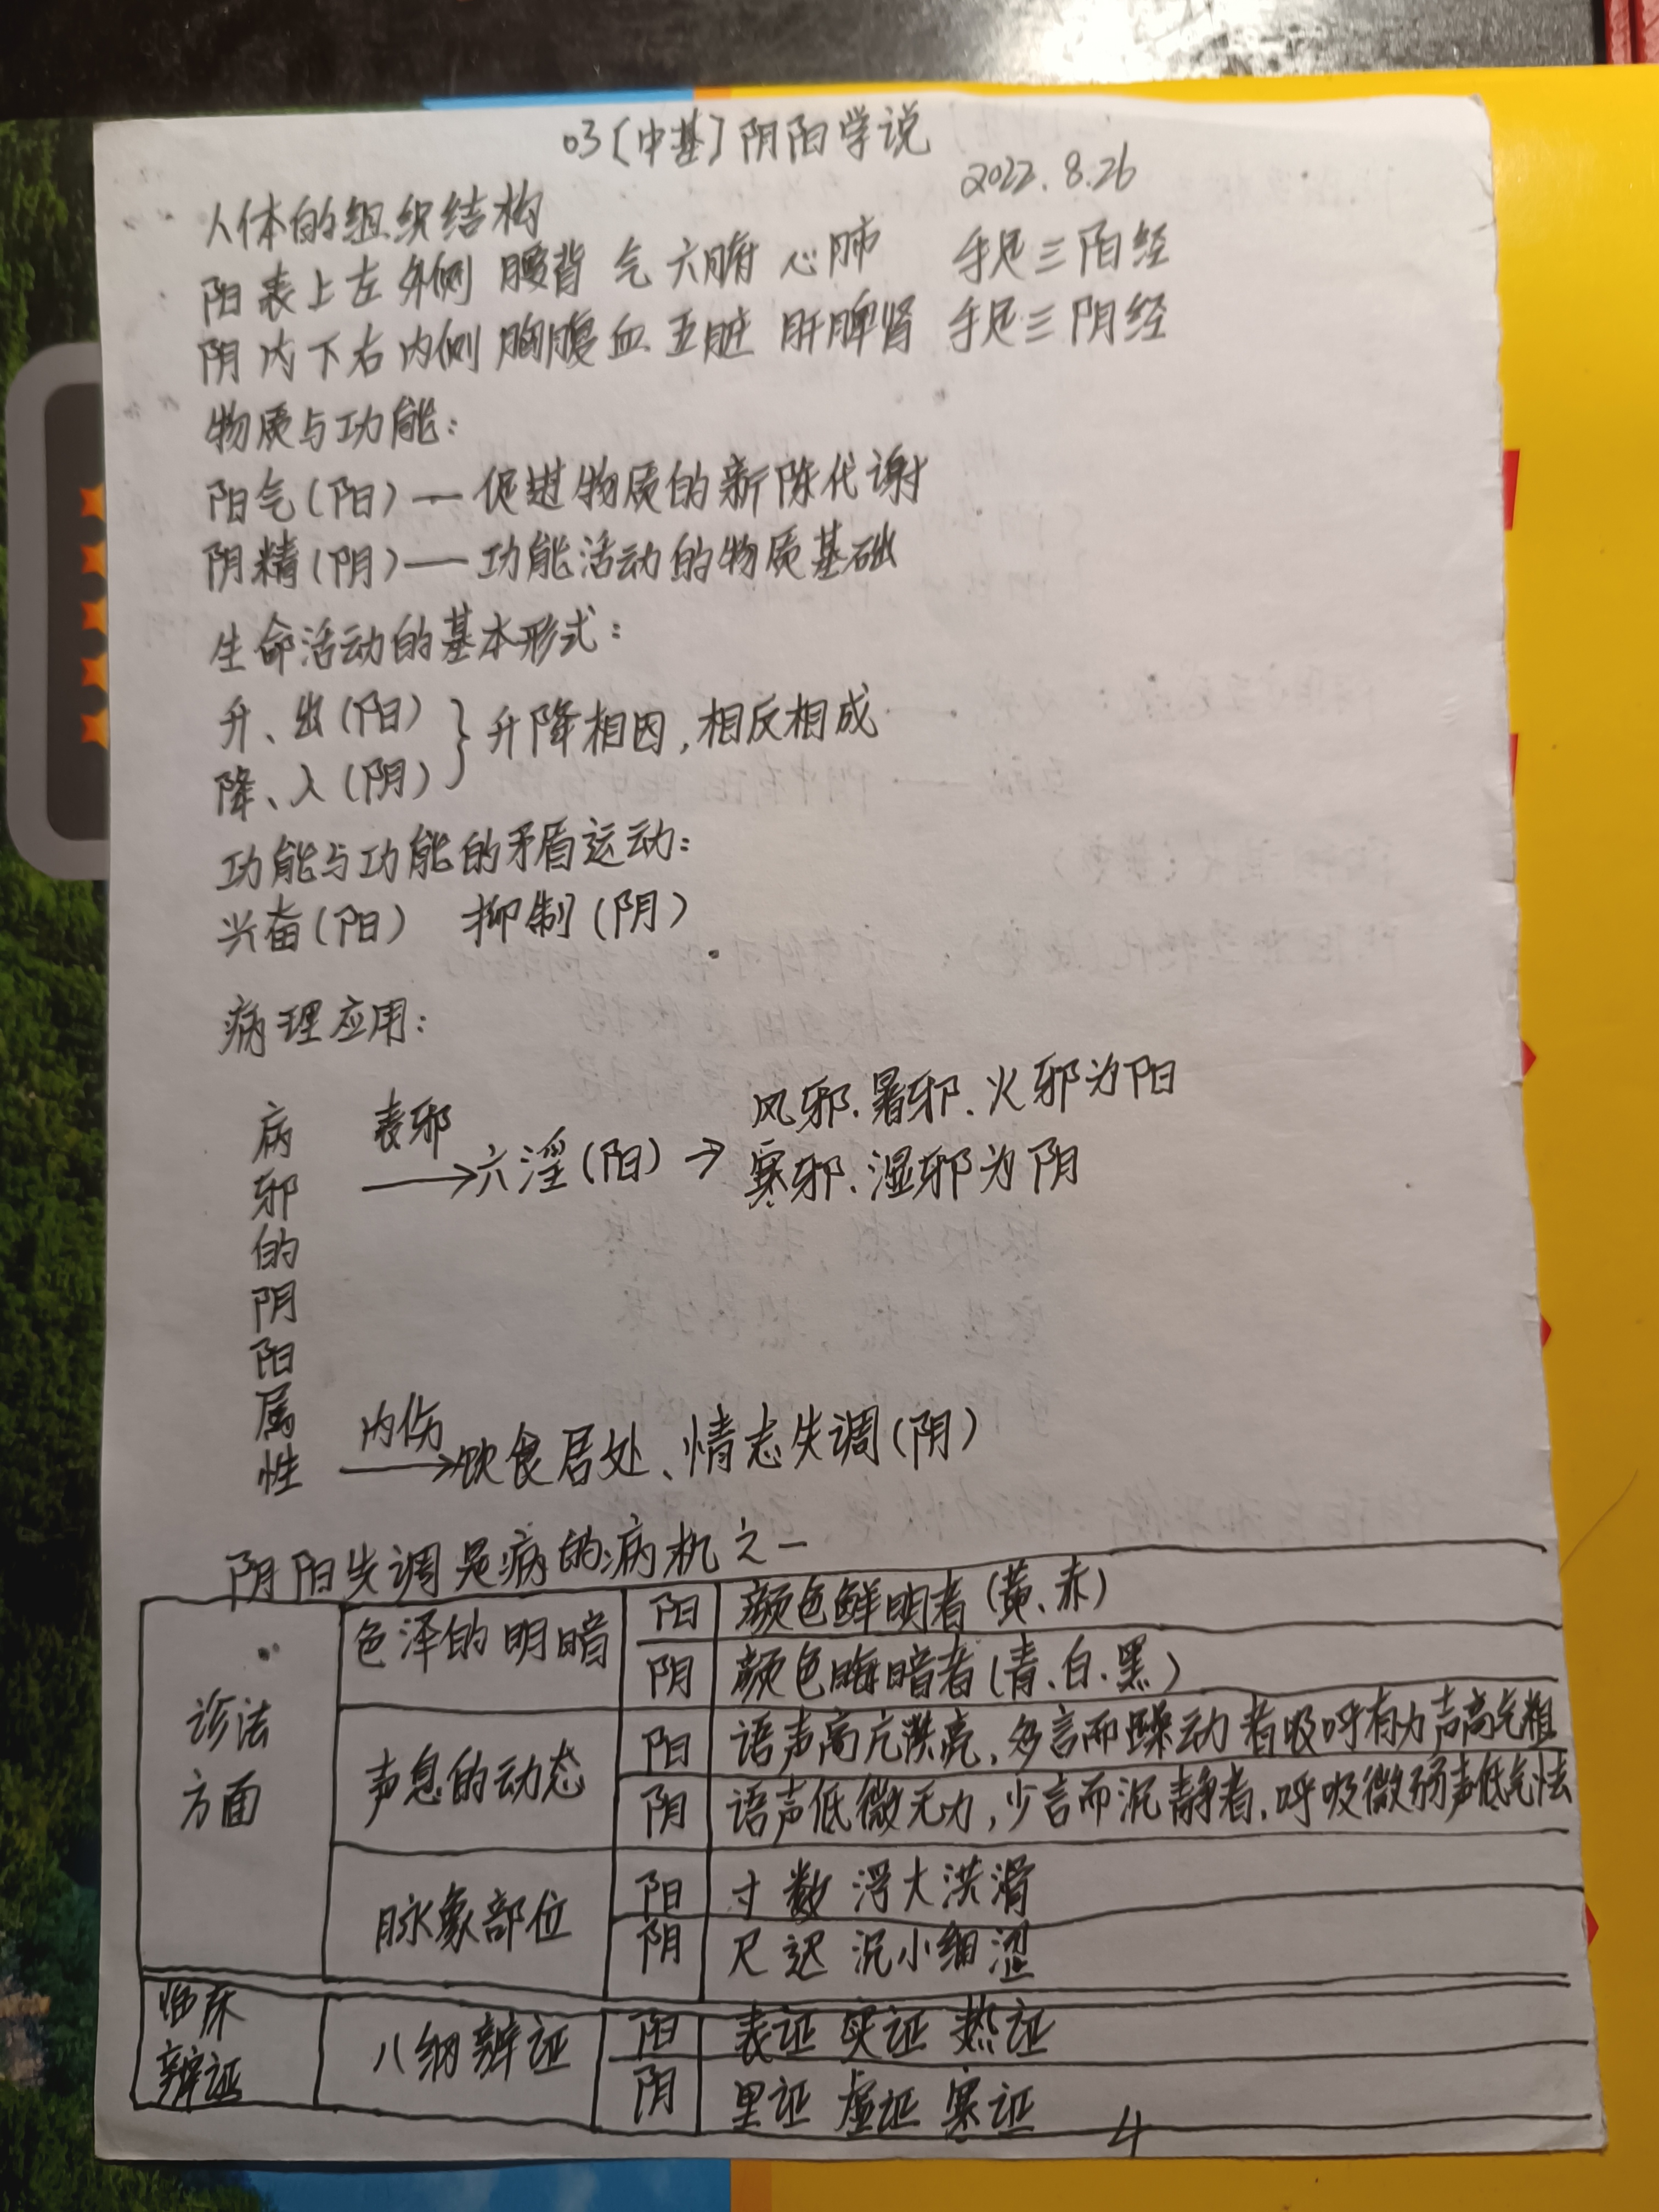 03［中基］阴阳学说
2022.8.26
人体的组织结构
阳 表 上 左 外侧 腰背 气 六腑 心肺 手足三阳经
阴 内 下 右 内侧 胸腹 血 五脏 肝脾肾 手足三阴经
物质与功能：
阳气（阳）— 促进物质的新陈代谢
阴精（阴）— 功能活动的物质基础
生命活动的基本形式：
升、出（阳）
降、入（阴）
} 升降相因，相反相成
功能与功能的矛盾运动：
兴奋（阳） 抑制（阴）
病理应用：
病邪的阴阳属性
表邪
→六淫（阳）→
风邪.暑邪.火邪为阳
寒邪.湿邪为阴
内伤
→饮食居处、情志失调（阴）
阴阳失调是病的病机之一
诊法
方面
色泽的明暗
阳 颜色鲜明者（黄、赤）
阴 颜色晦暗者（青.白.黑）
声息的动态
阳 语声高亢洪亮、多言而躁动者吸呼有力声高气粗
阴 语声低微无力，少言而沉静者.呼吸微弱声低气怯
脉象部位
阳 寸 数 浮大洪滑
阴 尺 迟 沉小细涩
临床
辨证
八纲辨证
阳 表证 实证 热证
阴 里证 虚证 寒证
4